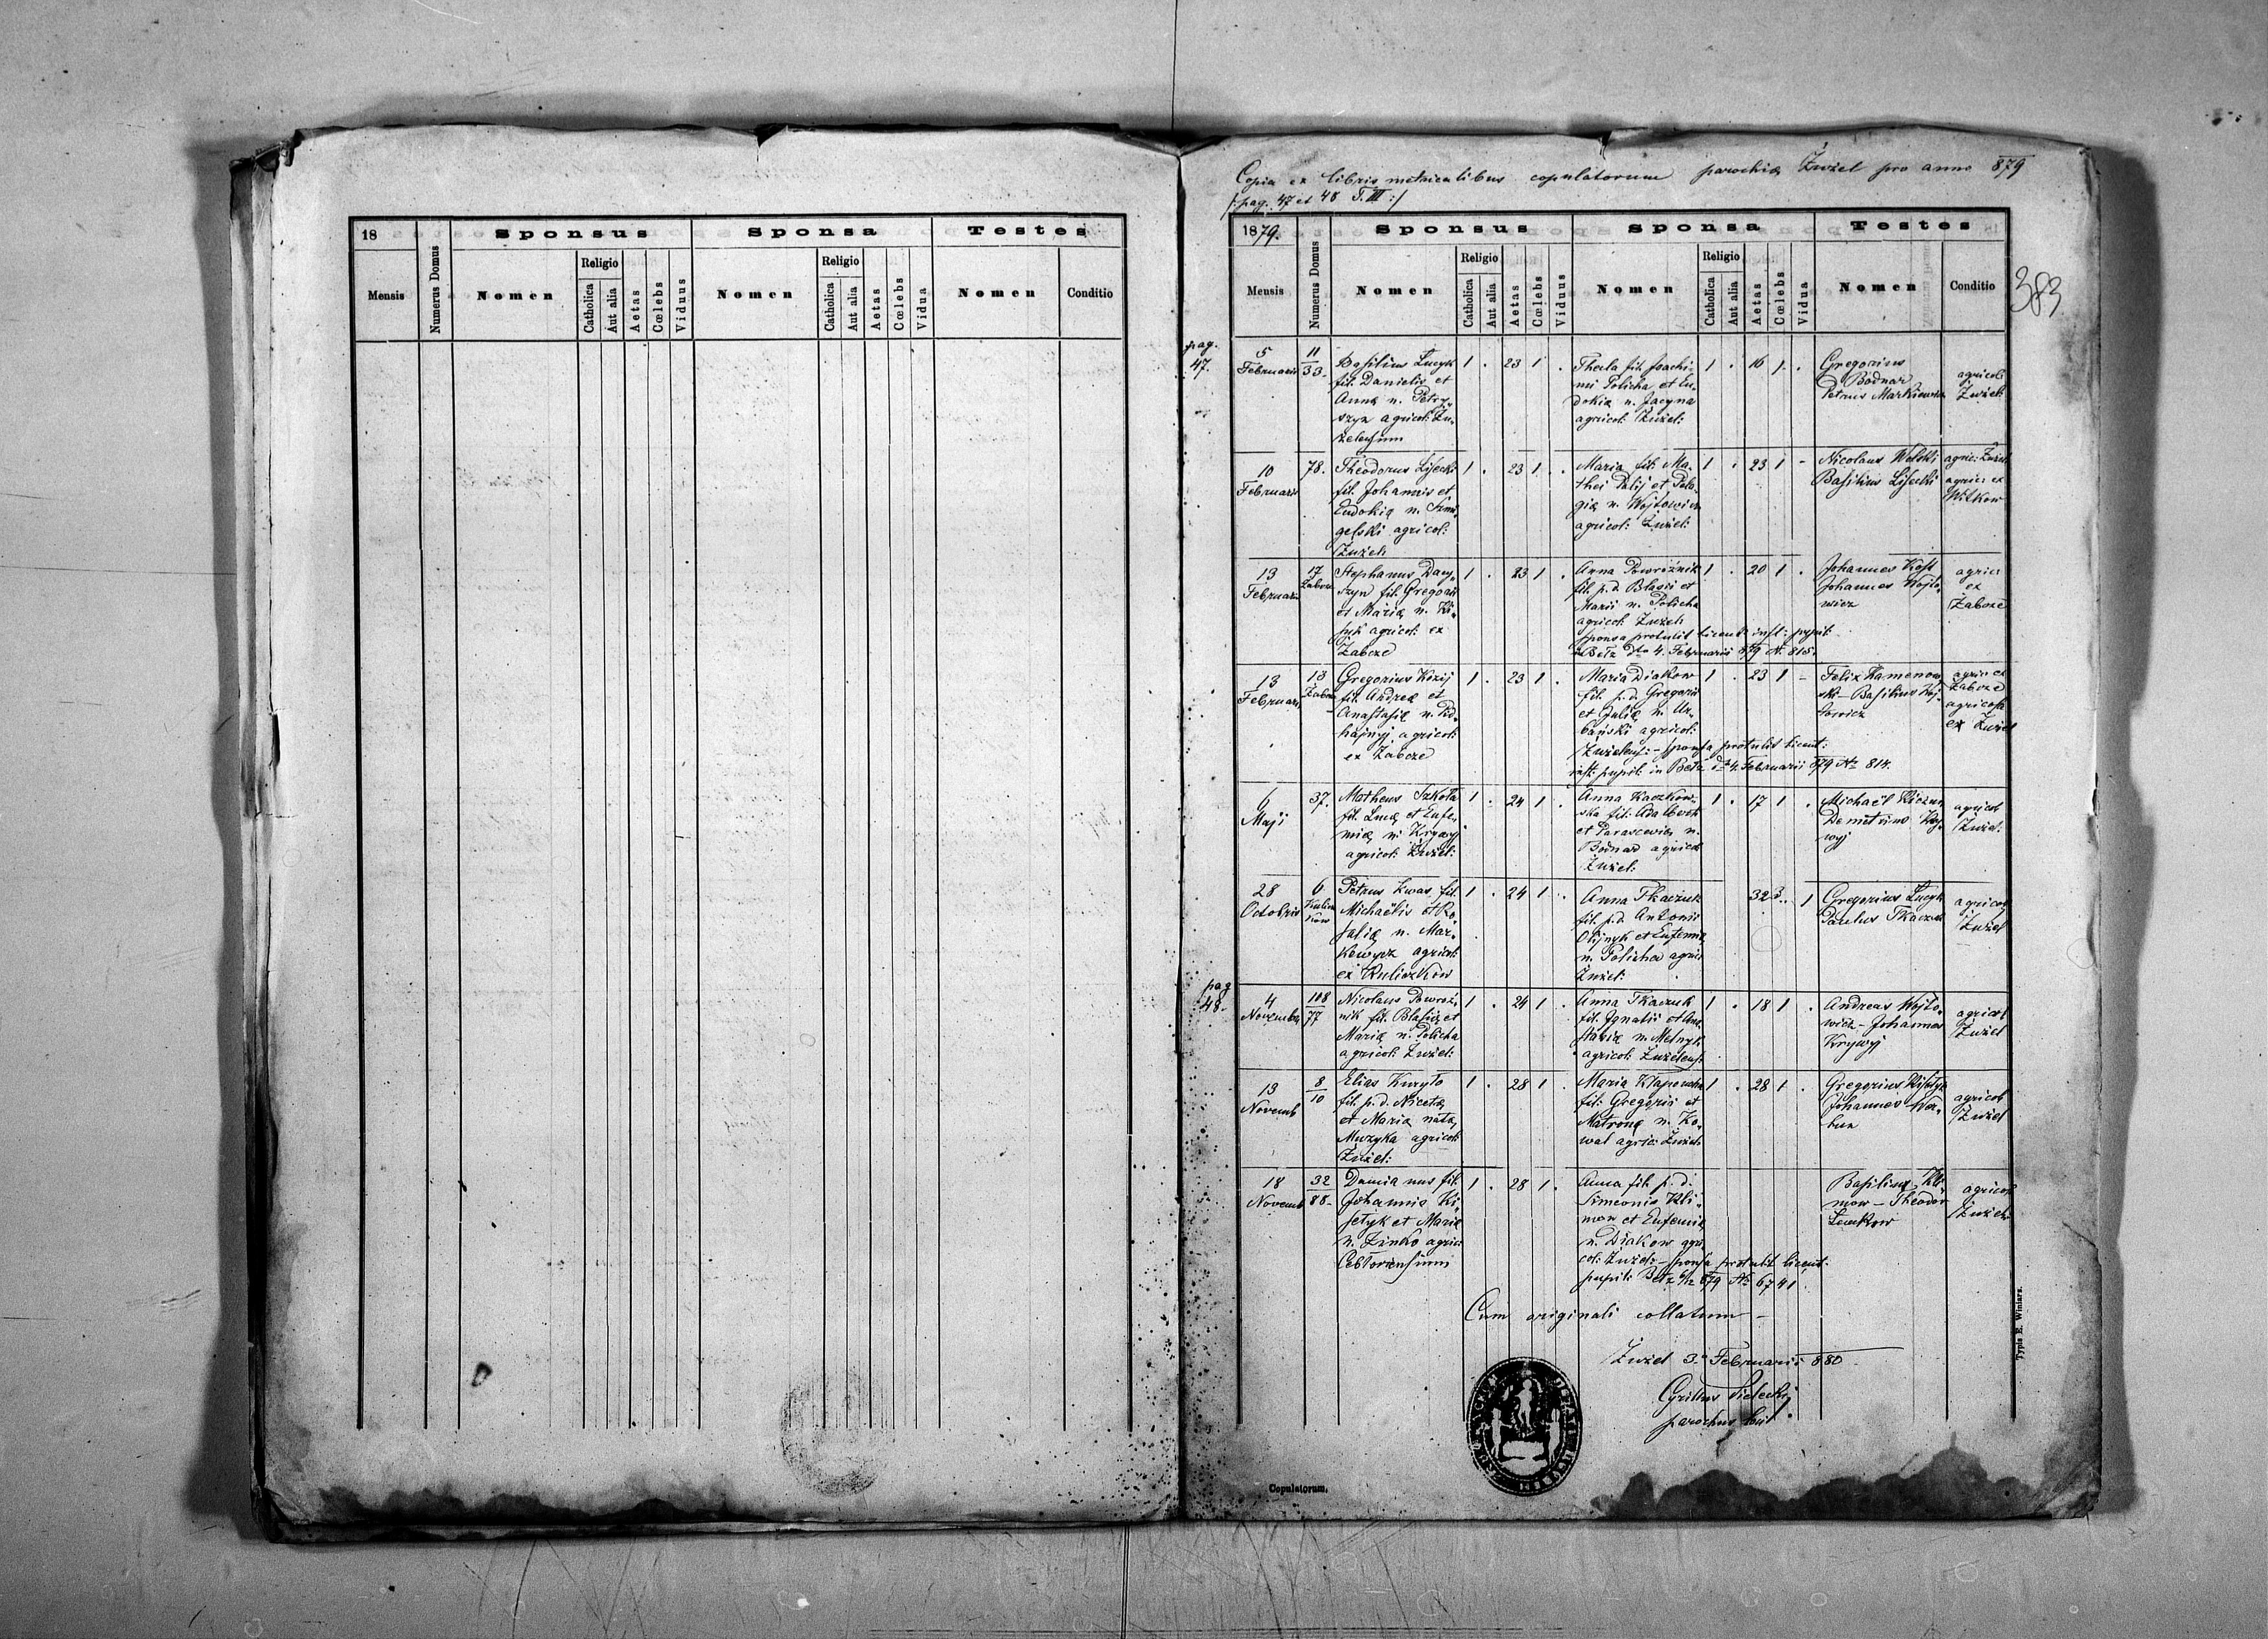 18
Sponsus
Sponsa
Testes
Mensis
Numerus Domus
Nomen
Religio
Catholica
Aut alia
Aetas
Cœlebs
Viduus
Nomen
Religio
Catholica
Aut alia
Aetas
Cœlebs
Vidua
Nomen
Conditio
Copia ex libris metricalibus copulatorum parochiæ Żużel pro anno 879
/: pag. 47 et 48 T. III :/
383
1879.
Sponsus
Sponsa
Testes
Mensis
Numerus Domus
Nomen
Religio
Catholica
Aut alia
Aetas
Cœlebs
Viduus
Nomen
Religio
Catholica
Aut alia
Aetas
Cœlebs
Vidua
Nomen
Conditio
pag.
47.
5
Februarii
11
33
Basilius Łucyk
fil. Danielis et
Annæ n. Petry-
szyn agricol: Żu-
żelensium
1 . 23 1 .
Thecla fil. Joachi-
mi Policha et Eu-
dokiæ n. Jacyna
agricol: Żużel:
1 . 16 1 .
Gregorius
Bodnar
Petrus Markiewicz
agricol:
Żużel:
10
Februarii
78.
Theodorus Lisecki
fil. Johannis et
Eudokiæ n.
gelski agricol:
Żużel:
1 . 23 1 .
Maria fil. Ma-
thei Palij et Pela-
giæ n. Wojtowicz
agricol: Żużel:
1 . 23 1 -
Nicolaus Wolski
Basilius Lisecki
agric: Żużel
agric: ex
Witkow
13
Februarii
17
Żabcze
Stephanus Dacy-
szyn fil. Gregorii
et Mariæ n. Ki-
syk agricol: ex
Żabcze
1 . 23 1 .
Anna Powroźnik
fil. p. d. Blasii et
Marii n. Policha
agricol: Żużel:
sponsa protulit licent: inst: pupil:
Bełz dto 4. Februarii 879 N. 815.
1 . 20 1 .
Johannes Kost
Johannes Wojto-
wicz
agric:
ex
Żabcze
13
Februarii
13
Żabcze
Gregorius Kizij
fil. Andreæ et
Anastasiæ n. Pid-
hajnyj agricol:
ex Żabcze
1 . 23 1 .
Maria Diakow
fil. p. d. Gregorii
et Juliæ n. Ur-
bański agricol:
Żużelens: - sponsa protulit licent:
inst: pupil: in Bełz dto 4. Februarii 879 No 814.
1 . 23 1 -
Felix Kamenow-
ski - Basilius Woj-
towicz
agric: ex
Żabcze
agricola
ex Żużel
6
Maji
37.
Matheus Szkoła
fil. Lucæ et Eufe-
miæ n. Krywyj
agricol: Żużel:
1 . 24 1 .
Anna Kaczkow-
ska fil: Adalberti
et Parasceviæ n.
Bodnar agricol:
Żużel:
1 . 17 1 .
Michaël
Demetrius Kry-
wyj
agricol:
Żużel:
28
Octobris
6
Kulicz-
ków
Petrus Kwas fil.
Michaëlis et Ro-
saliæ n. Mar-
kewycz agricol:
ex Kuliczkow
1 . 24 1 .
Anna Tkaczuk
fil. p. d. Antonii
Olijnyk et Eufemiæ
n. Policha agric:
Żużel:
32 . 1
Gregorius Łucyk
Paulus Tkaczuk
agricol:
Żużel
pag
48.
4
Novembris
108
77
Nicolaus Powroź-
nik fil. Blasii et
Mariæ n. Policha
agricol: Żużel:
1 . 24 1 .
Anna Tkaczuk
fil. Ignatii et Ana-
stasiæ n. Melnyk
agricol: Żużelens:
1 . 18 1 .
Andreas Wojto-
wicz - Johannes
Krywyj
agricol:
Żużel
13
Novemb
8
10
Elias Kuryło
fil. p. d. Nicetæ
et Mariæ natæ
Muzyka agricol:
Żużel:
1 . 28 1 .
Maria Kłapouch
fil: Gregorii et
Matronæ n. Ko-
wal agric: Żużel:
1 . 28 1 .
Gregorius
Johannes Wer-
bun
agricol:
Żużel
18
Novemb
32
88.
Damianus fil.
Johannis Ki-
setyk et Mariæ
n. Zinko agric:
Cebłoviensium
1 . 28 1 .
Anna fil. p. d.
Simeonis Kli-
mow et Eufemiæ
n. Diakow agri-
col: Żużel: - sponsa protulit licent:
pupil: Bełz 879 No 6741
Basilius Kli-
mow - Theodor
Lewkow
agricol:
Żużel:
Cum originali collatum -
Żużel 3. Februarii 880
Cyrillus Sielecki
parochus loci
Copulatorum.
Typis E. Winiarz.